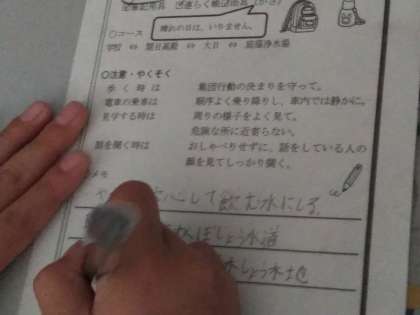 晴れの日は、いりません。
〇コース
学校 ⇔ 朝日高殿 ⇔ 大日 ⇔ 庭窪浄水場
〇注意・やくそく
歩く時は 集団行動の決まりを守って。
電車の乗車は 順序よく乗り降りし、車内では静かに。
見学する時は 周りの様子をよく見て。
危険な所に近寄らない。
話を聞く時は おしゃべりせずに、話をしている人の
顔を見てしっかり聞く。
メモ
心して飲む水にする。
しょう水道
しょう水地